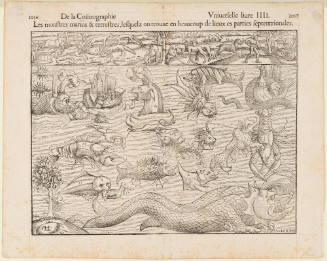 De la Cosmographie Vniuerselle liure IIII.
Les monstres marins & terrestres, lesquelz on trouue en beaucoup de lieux es parties septentrionales.